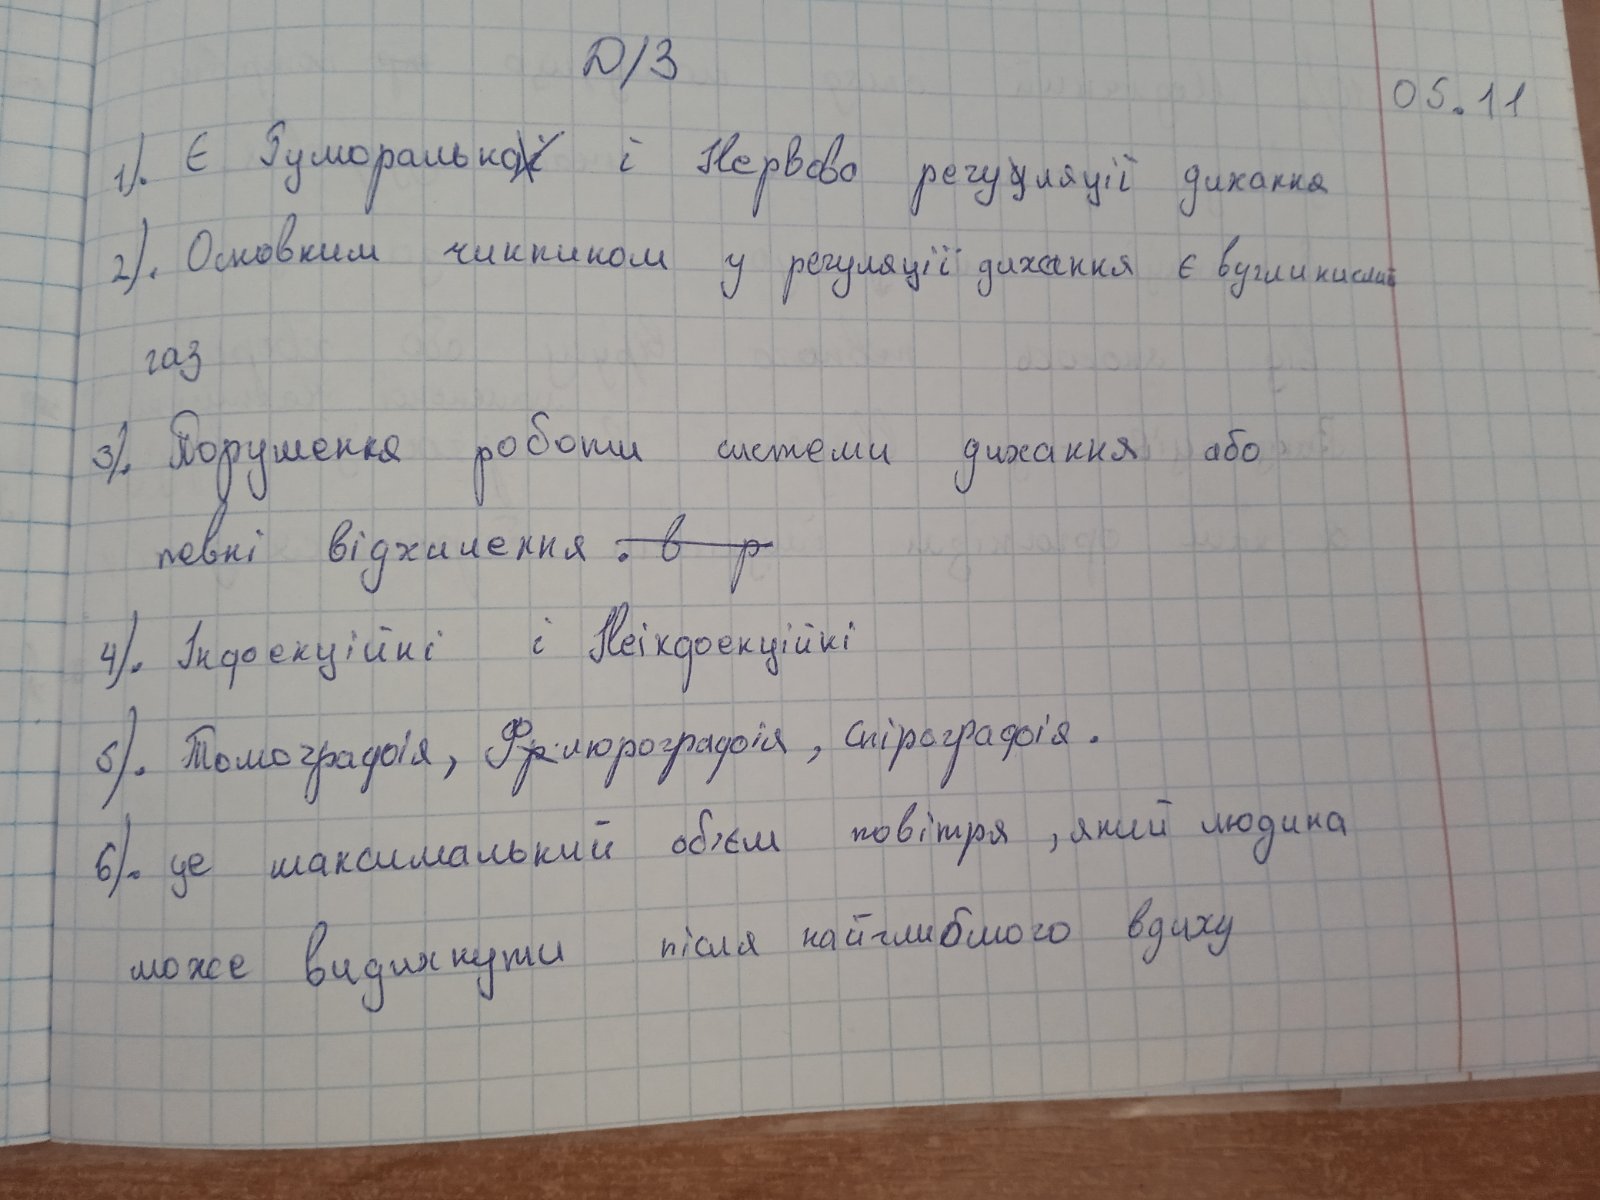 Д/З
05.11
1). Є Гуморальна і Нервово регуляції дихання
2). Основним чинником у регуляції дихання є вугликислий
газ
3). Порушення роботи системи дихання або
певні відхилення . в р
4). Інфекційні і Неінфекційні
5). Томографія, Флюрографія, Спірографія.
6). це максимальний об'єм повітря, який людина
може видихнути після найглибшого вдиху